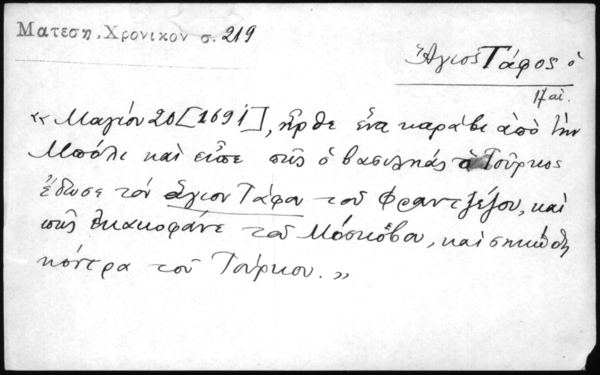 Ματεση, Χρονικον σ. 219
Ἅγιος Τάφος ὁ
«Μαγίου 20 [1691], ἦρθε ἕνα καράβι ἀπὸ τὴν
Μπόλι καὶ εἶπε πῶς ὁ βασιληάς ὁ Τοῦρκος
ἔδωσε τὸν Ἅγιον Τάφο τοῦ Φραντζέζου, καὶ
πῶς ἐκακοφάνε τοῦ Μόσκοβου, καὶ σηκώθη
κόντρα τοῦ Τούρκου.»